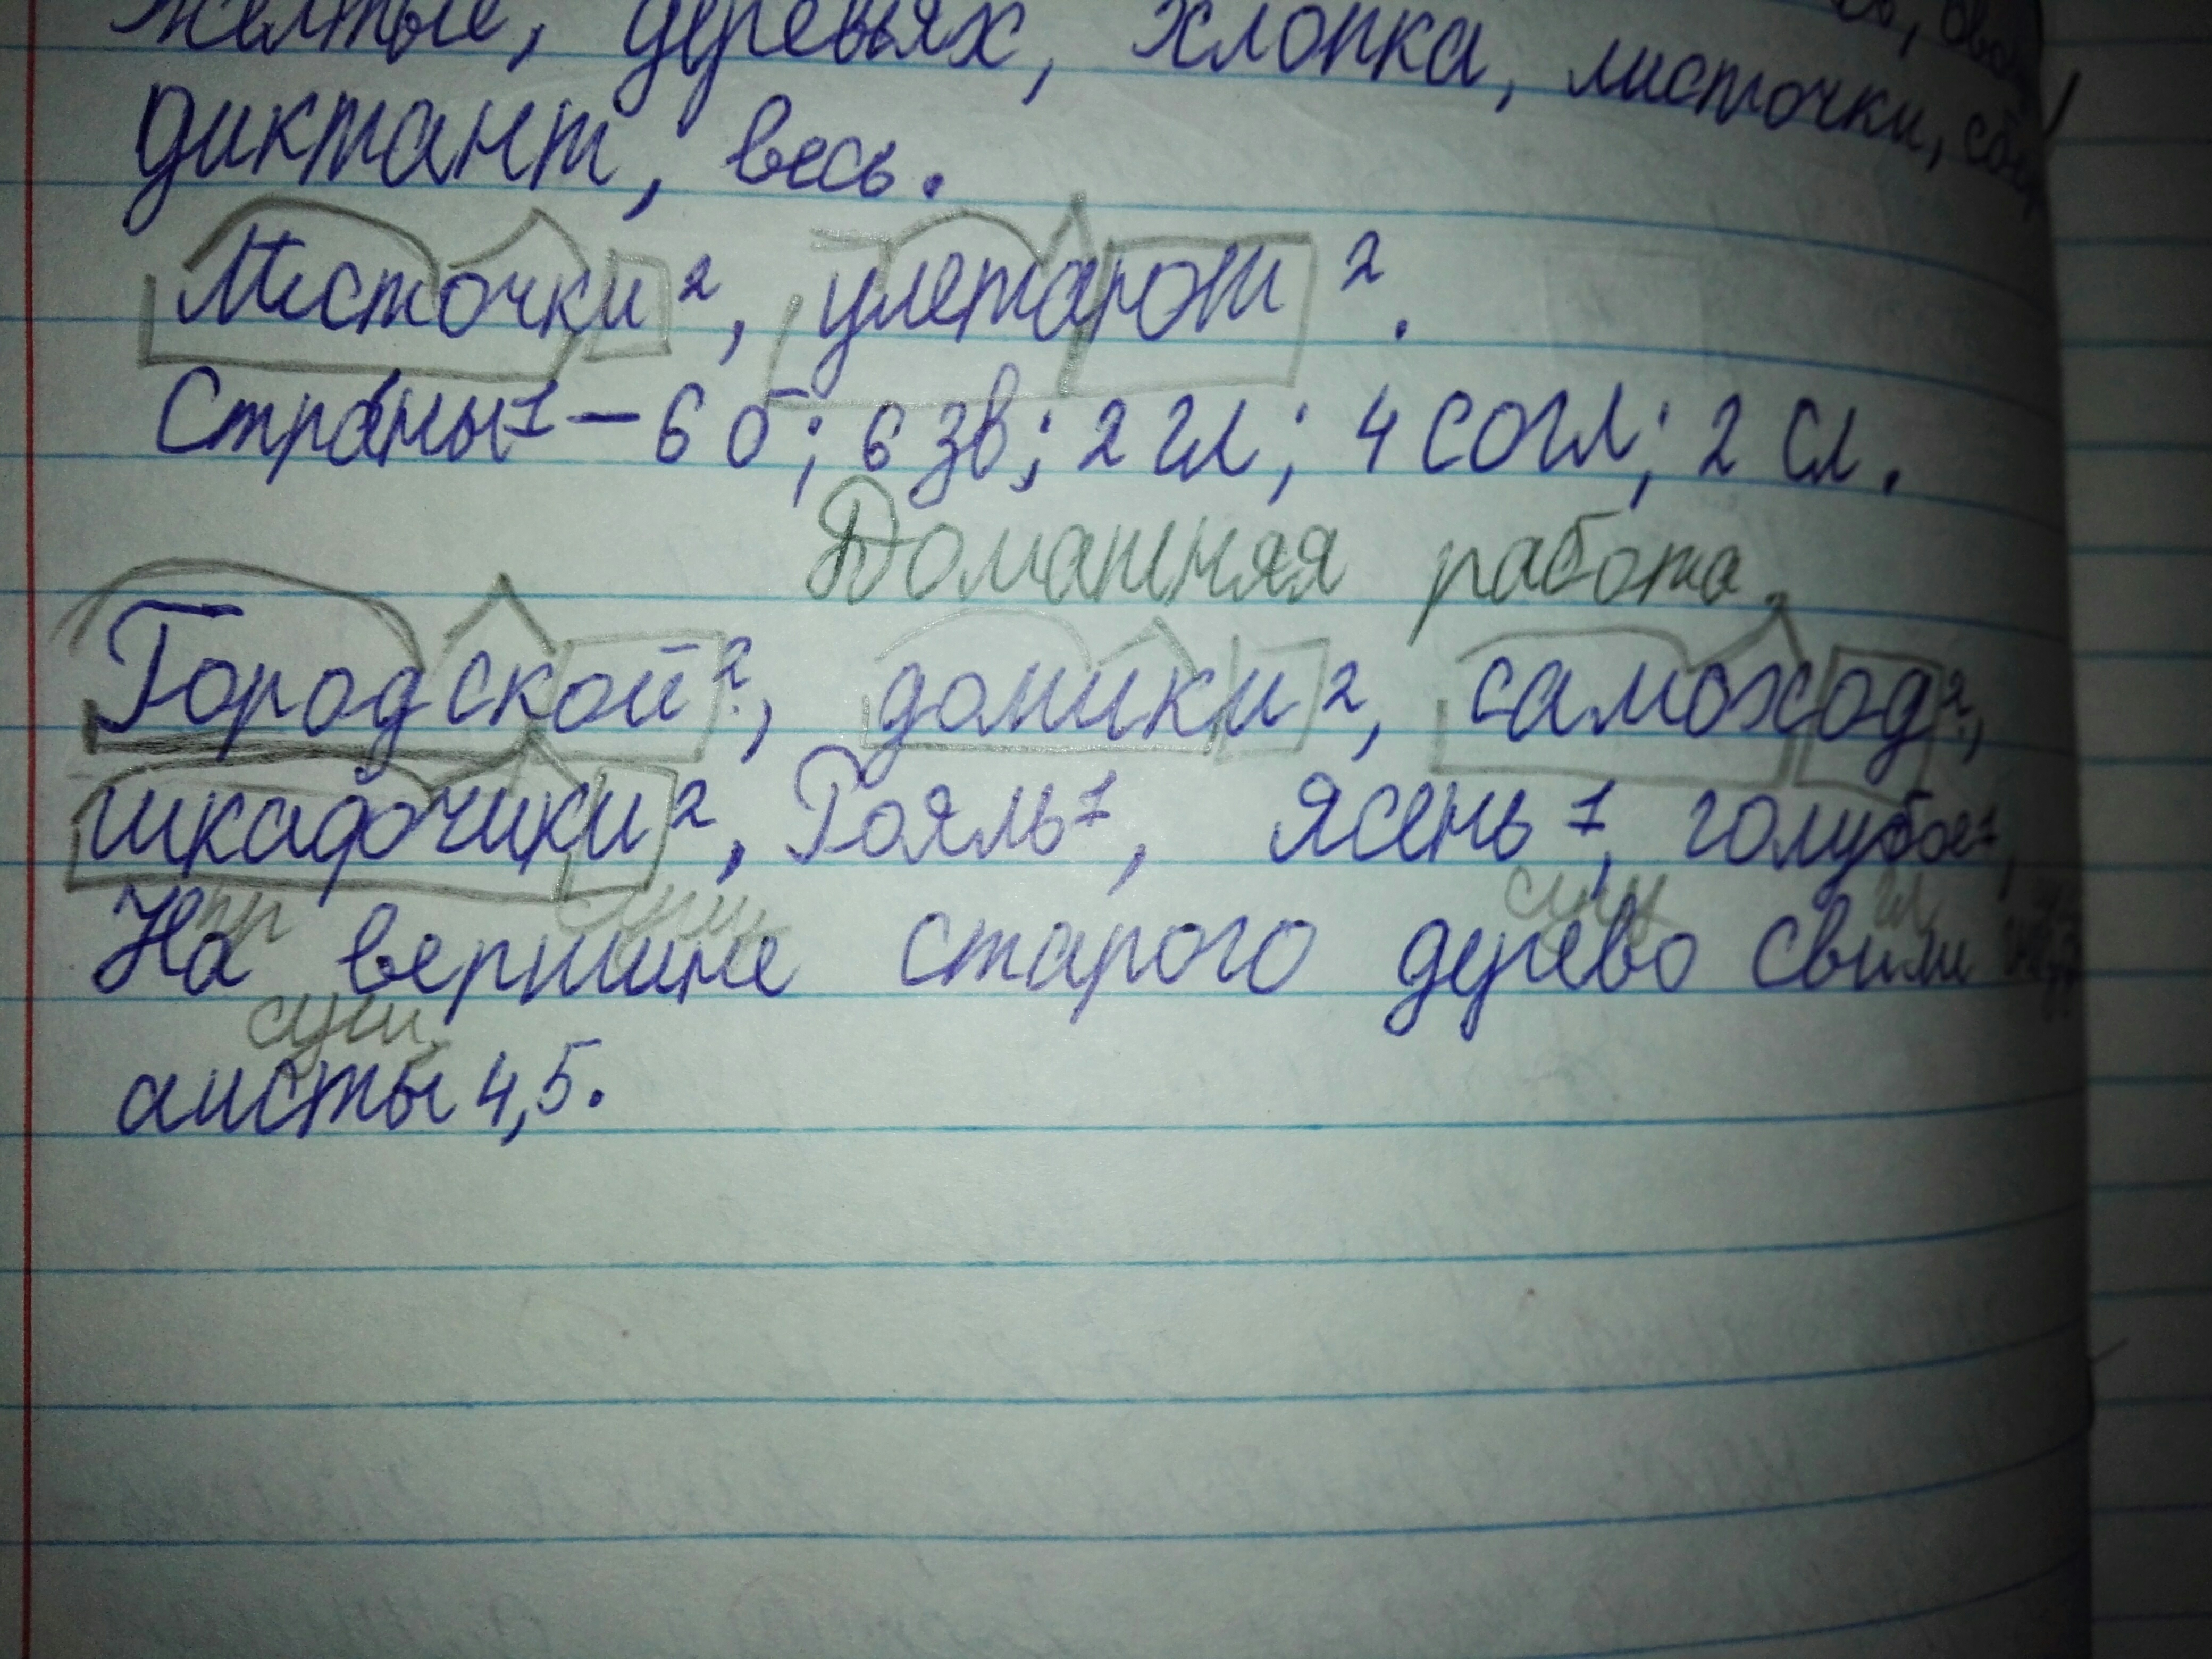 желтые, деревьях, хлопка, листочки,
диктант, весь.
Листочки 2, улетают 2.
Страны 1 – 6 б; 6 зв; 2 гл; 4 согл; 2 сл.
Домашняя работа.
Городской 2, домики 2, самоход 2,
шкафчики 2, Рояль 1, ясень 1, голубое 1,
пр сущ. сущ гл
На вершине старого дерево свили
сущ.
аисты 4,5.